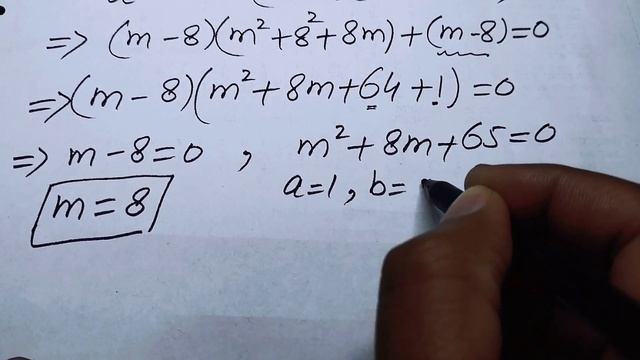 => (m-8)(m²+8²+8m)+(m-8)=0
=>(m-8)(m²+8m+64+1)=0
=> m-8=0 , m²+8m+65=0
m=8 a=1, b=